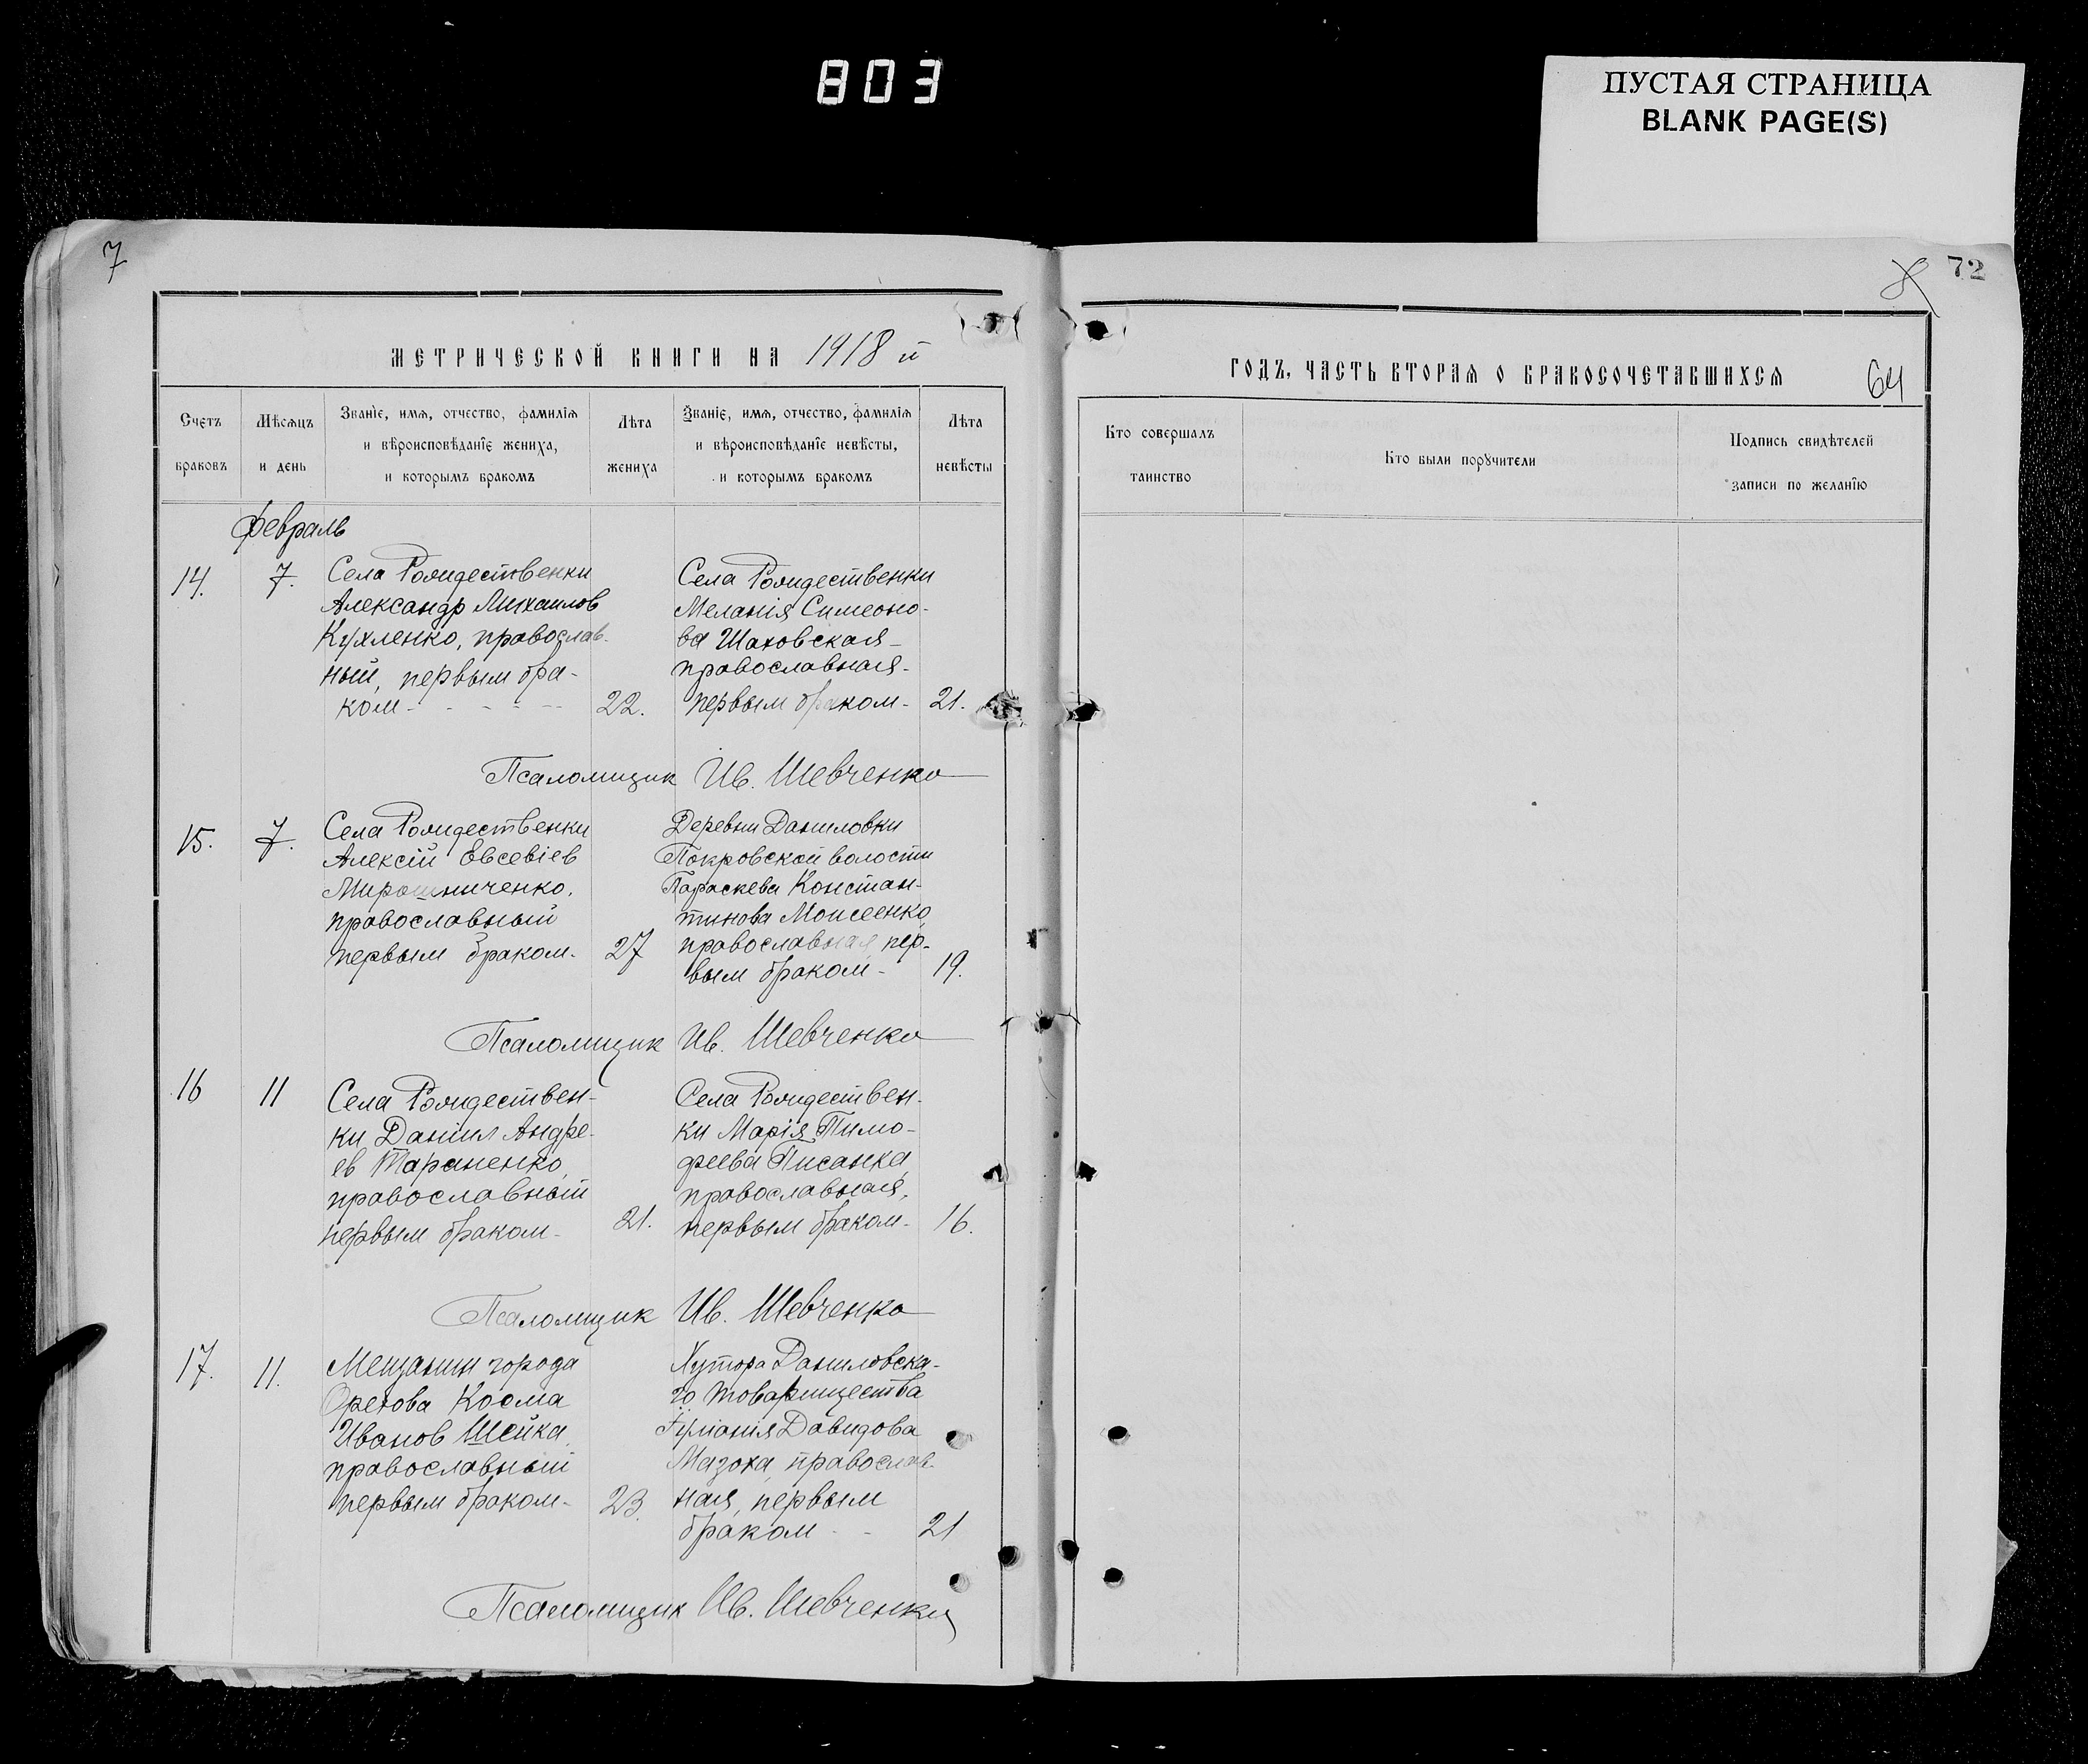 803
ПУСТАЯ СТРАНИЦА
BLANK PAGE(S)
7
72
МЕТРИЧЕСКОЙ КНИГИ НА 1918 й
ГОДЪ, ЧАСТЬ ВТОРАЯ О БРАКОСОЧЕТАВШИХСЯ
64
Счетъ
браковъ
Мѣсяцъ
и день
Званіе, имя, отчество, фамилія
и вѣроисповѣданіе жениха,
и которымъ бракомъ
Лѣта
жениха
Званіе, имя, отчество, фамилія
и вѣроисповѣданіе невѣсты,
и которымъ бракомъ
Лѣта
невѣсты
Кто совершалъ
таинство
Кто были поручители
Подпись свидѣтелей
записи по желанію
февраль
14.
7.
Села Рождественки
Александр Михаилов
Кухленко, православ-
ный, первым бра-
ком -
22.
Села Рождественки
Меланія Симеоно-
ва Шаховская -
православная -
первым браком -
21.
Псаломщик Ив. Шевченко
15.
7.
Села Рождественки
Алексій Евсевіев
Мирошниченко,
православный
первым браком -
27
Деревни Даниловки
Покровской волости
Параскева Констан-
тинова Моисеенко,
православная, пер-
вым браком -
19.
Псаломщик Ив. Шевченко
16
11
Села Рождествен-
ки Даниил Андре-
ев Тараненко,
православный
первым браком -
21.
Села Рождествен-
ки Марія Тимо-
феева Писанка,
православная,
первым браком -
16.
Псаломщик Ив. Шевченко
17.
11.
Мещанин города
Орехова Косма
Иванов Шейка
православный
первым браком -
23.
Хутора Даниловска-
го товарищества
Давидова
Мазоха, православ-
ная, первым
браком - -
21
Псаломщик Ив. Шевченко